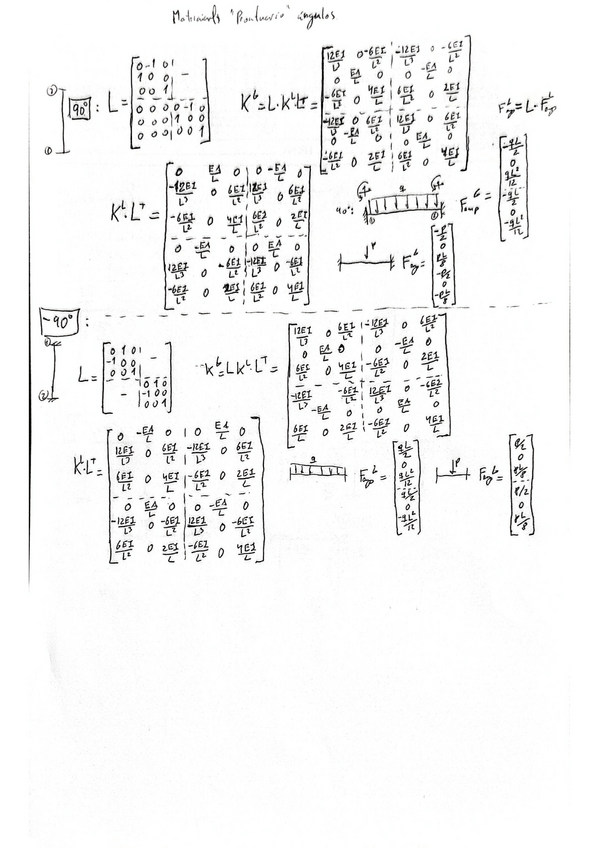 Matriciales "Prontuario" ángulos
② ① 90° :
L = [ 0 -1 0 | - ]
[ 1 0 0 | ]
[ 0 0 1 | ]
[ 0 0 0 | 0 -1 0 ]
[ 0 0 0 | 1 0 0 ]
[ 0 0 0 | 0 0 1 ]
K^G = L·K^L·L^T =
[ 12EI/L³ 0 -6EI/L² | -12EI/L³ 0 -6EI/L² ]
[ 0 EA/L 0 | 0 -EA/L 0 ]
[ -6EI/L² 0 4EI/L | 6EI/L² 0 2EI/L ]
[ -12EI/L³ 0 6EI/L² | 12EI/L³ 0 6EI/L² ]
[ 0 -EA/L 0 | 0 EA/L 0 ]
[ -6EI/L² 0 2EI/L | 6EI/L² 0 4EI/L ]
= L ·
K^L·L^T =
[ 0 EA/L 0 | 0 -EA/L 0 ]
[ -12EI/L³ 0 6EI/L² | 12EI/L³ 0 6EI/L² ]
[ -6EI/L² 0 4EI/L | 6EI/L² 0 2EI/L ]
[ 0 -EA/L 0 | 0 EA/L 0 ]
[ 12EI/L³ 0 -6EI/L² | -12EI/L³ 0 -6EI/L² ]
[ -6EI/L² 0 2EI/L | 6EI/L² 0 4EI/L ]
90°: q ① ②
F_emp^G = [ -qL/2 0 qL²/12 -qL/2 0 -qL²/12 ]
P
-90° :
① ②
L = [ 0 1 0 | - ]
[ -1 0 0 | ]
[ 0 0 1 | ]
[ - | 0 1 0 ]
[ | -1 0 0 ]
[ | 0 0 1 ]
K^G = L K^L·L^T =
[ 12EI/L³ 0 6EI/L² | -12EI/L³ 0 6EI/L² ]
[ 0 EA/L 0 | 0 -EA/L 0 ]
[ 6EI/L² 0 4EI/L | -6EI/L² 0 2EI/L ]
[ -12EI/L³ 0 -6EI/L² | 12EI/L³ 0 -6EI/L² ]
[ 0 -EA/L 0 | 0 EA/L 0 ]
[ 6EI/L² 0 2EI/L | -6EI/L² 0 4EI/L ]
K^L·L^T =
[ 0 -EA/L 0 | 0 EA/L 0 ]
[ 12EI/L³ 0 6EI/L² | -12EI/L³ 0 6EI/L² ]
[ 6EI/L² 0 4EI/L | -6EI/L² 0 2EI/L ]
[ 0 EA/L 0 | 0 -EA/L 0 ]
[ -12EI/L³ 0 -6EI/L² | 12EI/L³ 0 -6EI/L² ]
[ 6EI/L² 0 2EI/L | -6EI/L² 0 4EI/L ]
q
[ qL/2 0 qL²/12 qL/2 0 -qL²/12 ]
P
[ P/2 0 PL/8 P/2 0 PL/8 ]